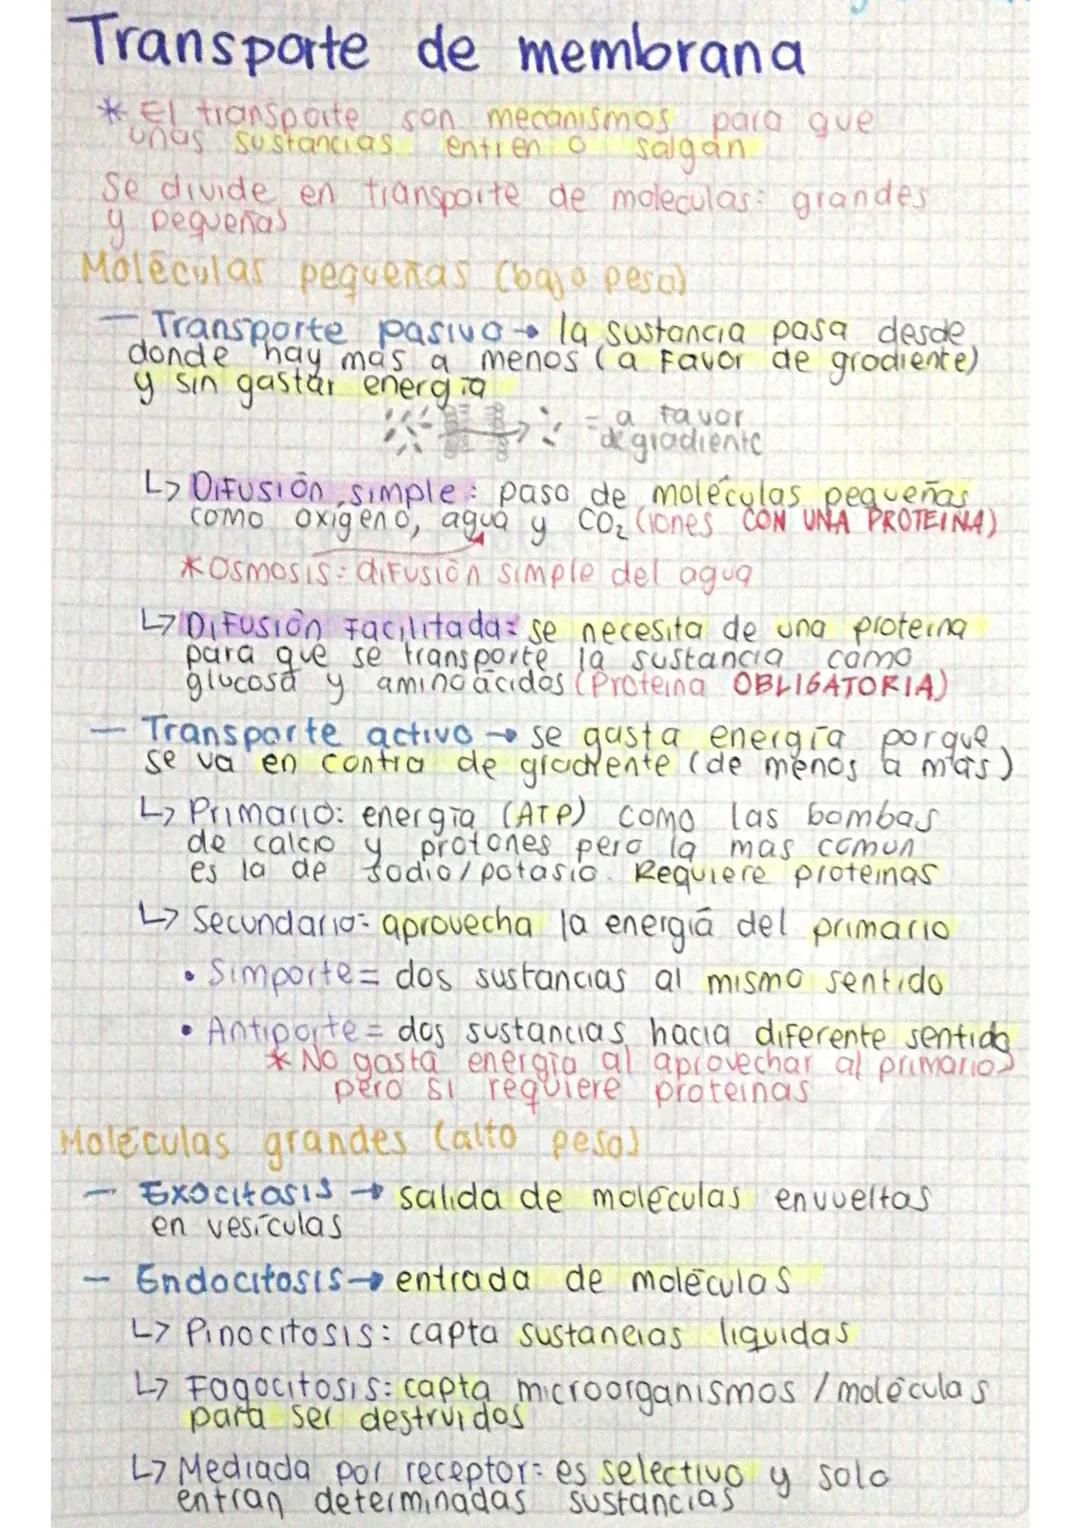 Transporte de membrana
* El transporte son mecanismos para que
unas sustancias entren o salgan
Se divide en transporte de moleculas: grandes
y pequeñas
Moléculas pequeñas (bajo peso)
— Transporte pasivo → la sustancia pasa desde
donde hay mas a menos (a Favor de gradiente)
y sin gastar energía
= a favor
de gradiente
↳ Difusión simple: paso de moléculas pequeñas
como oxígeno, agua y CO₂ (iones CON UNA PROTEINA)
*Osmosis: difusión simple del agua
↳ Difusión Facilitada: se necesita de una proteina
para que se transporte la sustancia como
glucosa y aminoácidos (Proteina OBLIGATORIA)
— Transporte activo → se gasta energía porque
se va en contra de gradiente (de menos a más)
↳ Primario: energía (ATP) como las bombas
de calcio y protones pero la mas comun
es la de sodio/potasio. Requiere proteinas
↳ Secundario: aprovecha la energía del primario
• Simporte = dos sustancias al mismo sentido
• Antiporte = dos sustancias hacia diferente sentido
* No gasta energía al aprovechar al primario
pero si requiere proteinas
Moléculas grandes (alto peso)
— Exocitosis → salida de moléculas envueltas
en vesículas
— Endocitosis → entrada de moléculas
↳ Pinocitosis: capta sustancias liquidas
↳ Fagocitosis: capta microorganismos / moléculas
para ser destruidos
↳ Mediada por receptor: es selectivo y solo
entran determinadas sustancias